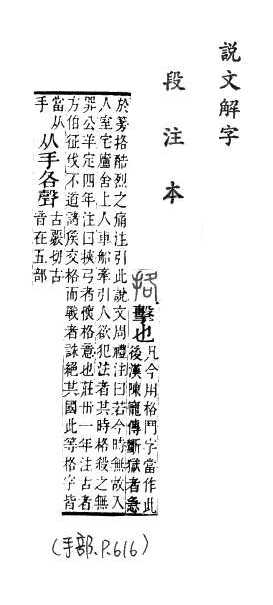 說文解字
段注本
挌
擊也
凡今用格鬥字當作此
後漢陳寵傳斷獄者急
於篣挌酷烈之痛注引此說文周禮注曰若今時無故入
人室宅廬舍上人車船牽引人欲犯法者其時格殺之無
罪公羊定四年注曰挾弓者懷格意也莊卅一年注古者
方伯征伐不道諸矦交格而戰者誅絕其國此等格字皆
當从
手
从手各聲
古覈切古
音在五部
(手部.P.616)